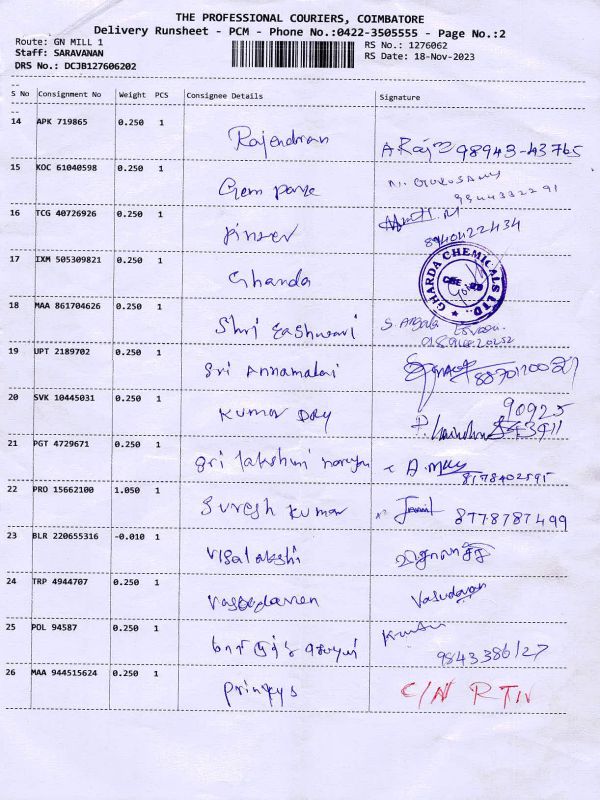 THE PROFESSIONAL COURIERS, COIMBATORE
Delivery Runsheet - PCM - Phone No.:0422-3505555 - Page No.:2
Route: GN MILL 1
Staff: SARAVANAN
DRS No.: DCJB127606202
RS No.: 1276062
RS Date: 18-Nov-2023
S No Consignment No Weight PCS Consignee Details Signature
14 APK 719865 0.250 1 Rajendran 98943-43765
15 KOC 61040598 0.250 1 Gem
16 TCG 40726926 0.250 1 8940422434
17 IXM 505309821 0.250 1 Gharda GHARDA CHEMICALS LTD.
18 MAA 861704626 0.250 1 Shri Eashwari
19 UPT 2189702 0.250 1 Sri Annamalai
20 SVK 10445031 0.250 1 Kumar 90925
21 PGT 4729671 0.250 1 Sri lakshmi
22 PRO 15662100 1.050 1 Suresh Kumar 8778787499
23 BLR 220655316 -0.010 1 Visalakshi
24 TRP 4944707 0.250 1 Vasudavan
25 POL 94587 0.250 1 9843386127
26 MAA 944515624 0.250 1 C/N RTN